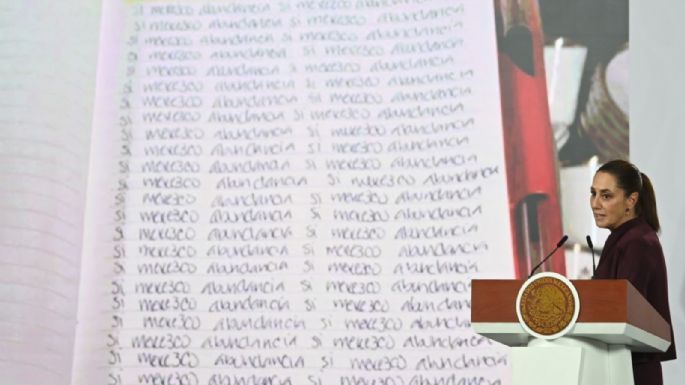 si merezco abundancia si merezco abundancia
si merezco abundancia si merezco abundancia
si merezco abundancia si merezco abundancia
si merezco abundancia si merezco abundancia
si merezco abundancia si merezco abundancia
si merezco abundancia si merezco abundancia
si merezco abundancia si merezco abundancia
si merezco abundancia si merezco abundancia
si merezco abundancia si merezco abundancia
si merezco abundancia si merezco abundancia
si merezco abundancia si merezco abundancia
si merezco abundancia si merezco abundancia
si merezco abundancia si merezco abundancia
si merezco abundancia si merezco abundancia
si merezco abundancia si merezco abundancia
si merezco abundancia si merezco abundancia
si merezco abundancia si merezco abundancia
si merezco abundancia si merezco abundancia
si merezco abundancia si merezco abundancia
si merezco abundancia si merezco abundan
si merezco abundancia si merezco abundancia
si merezco abundancia si merezco abundancia
si merezco abundancia si merezco abundancia